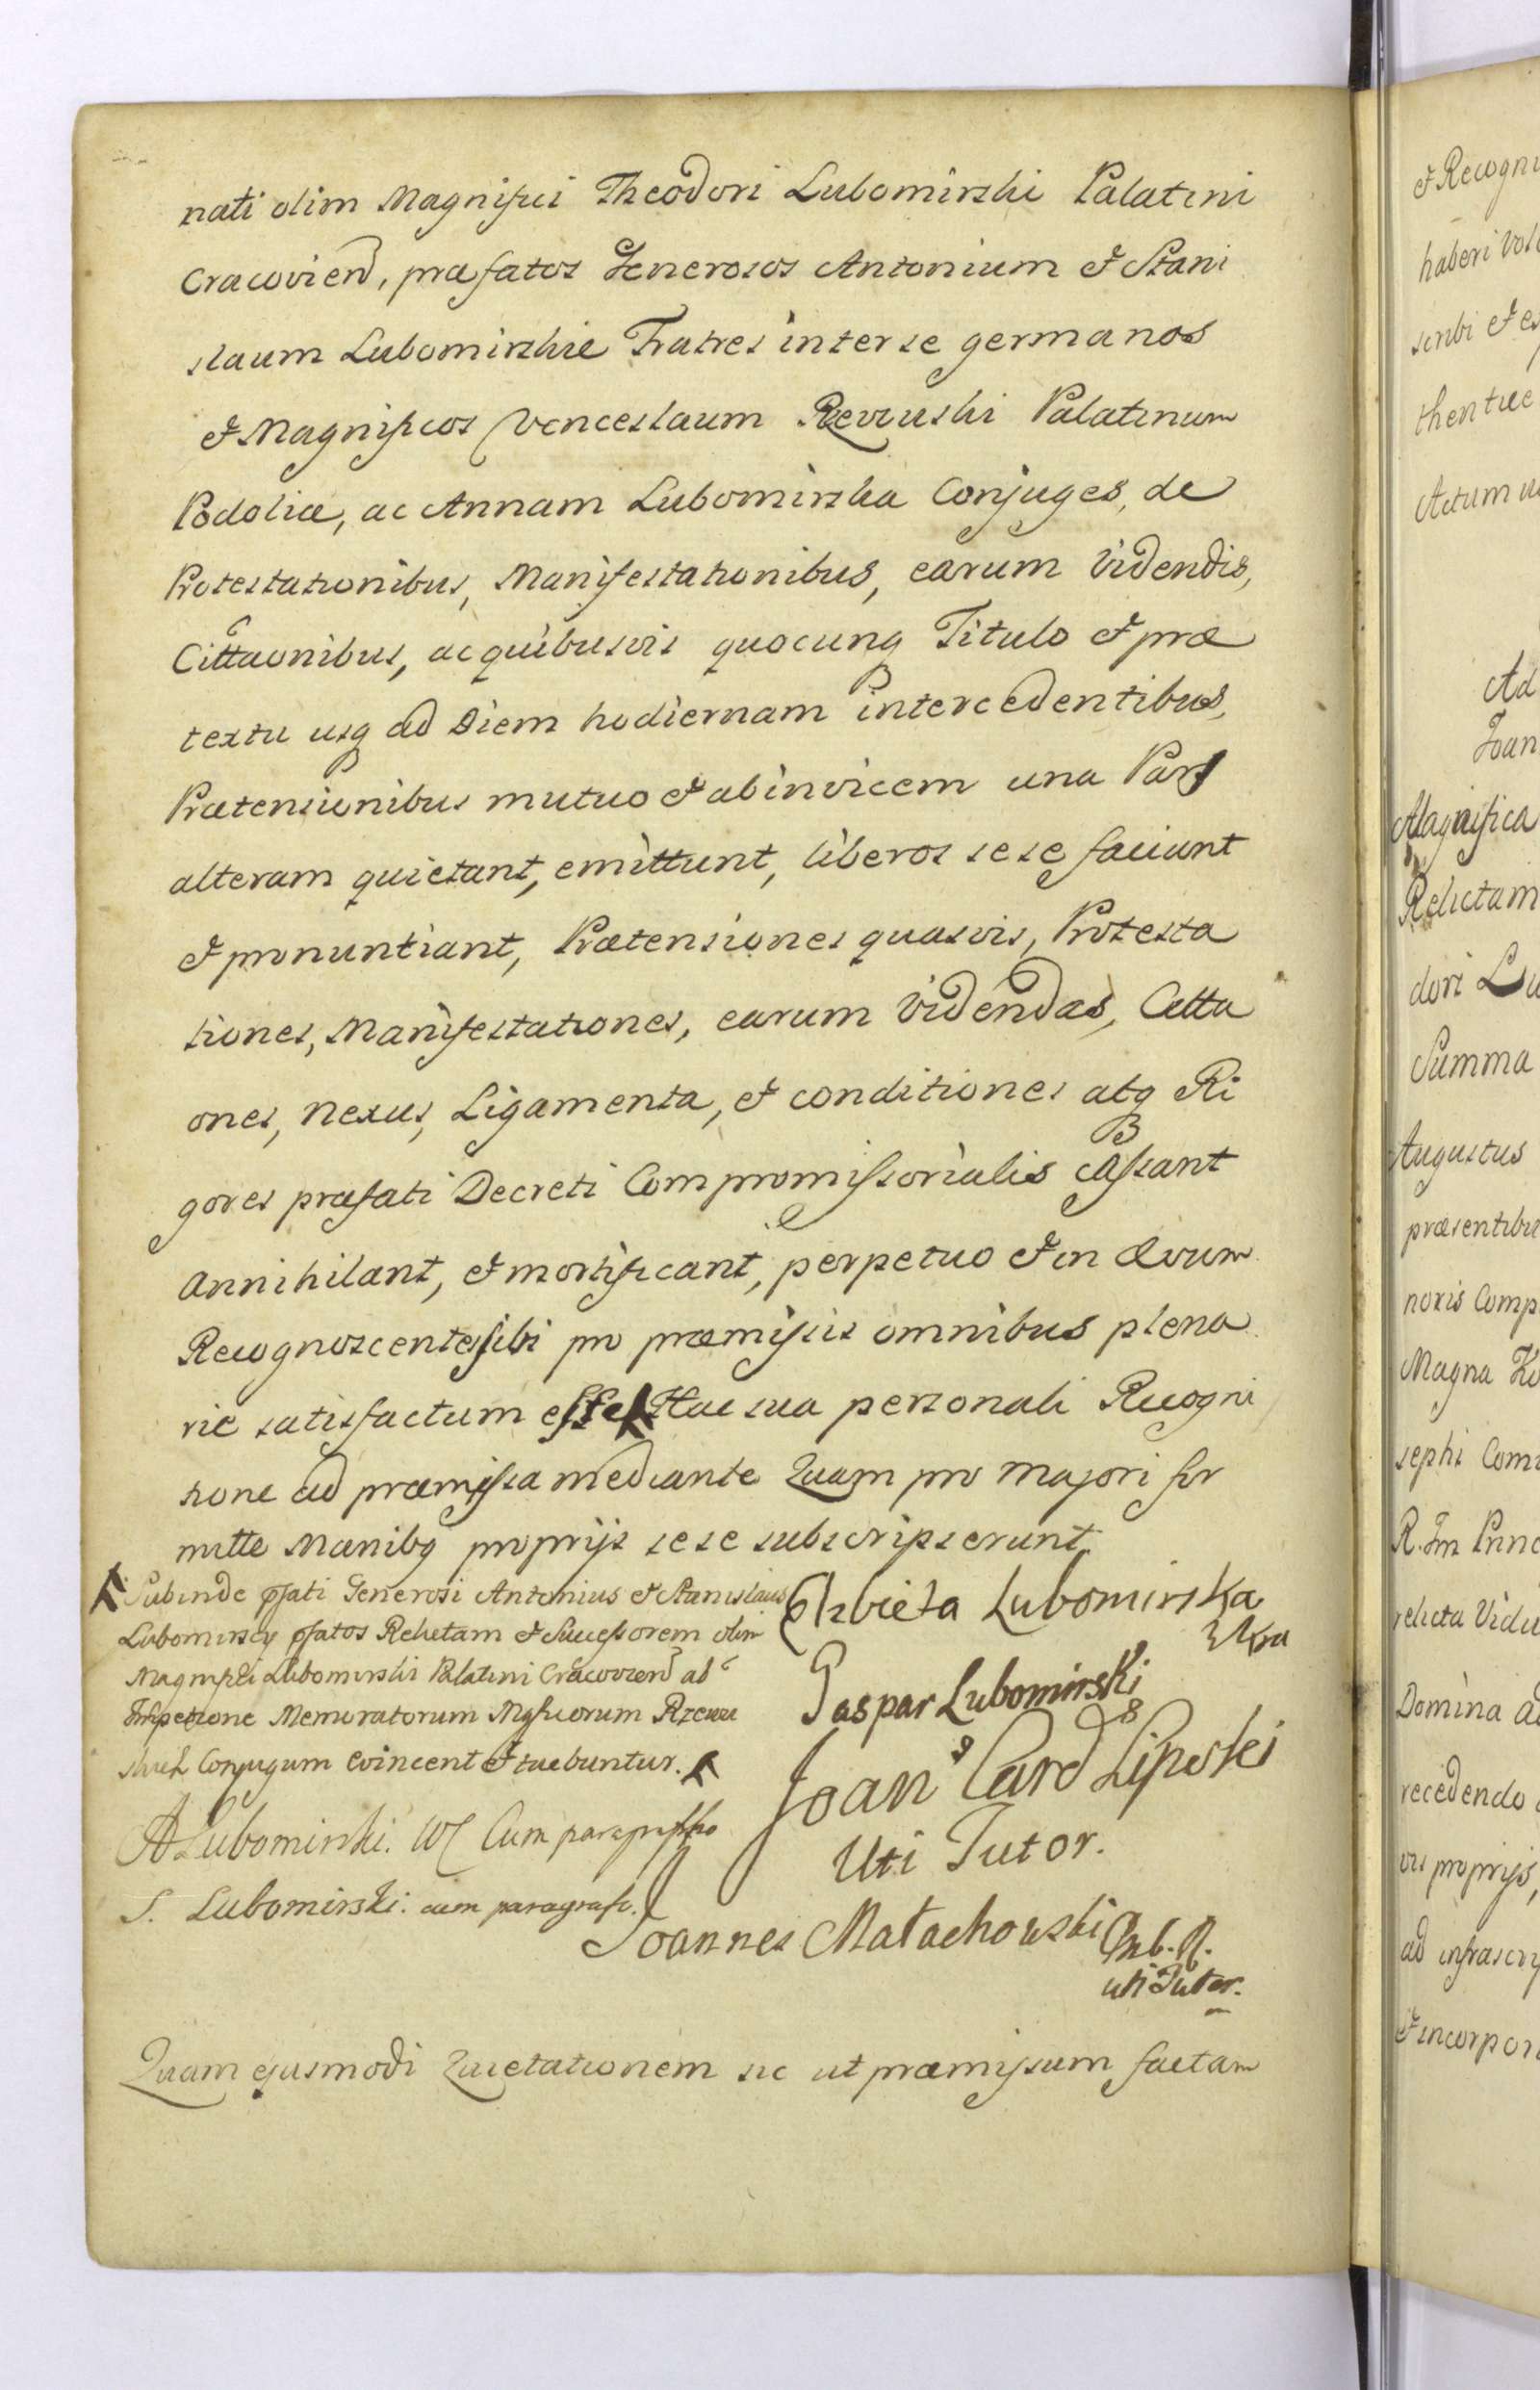 nati olim Magnifici Theodori Lubomirski Palatini
Cracovien, præfatos Generosos Antonium et Stani
slaum Lubomirskie Fratres inter se germanos
et Magnificos Venceslaum Revuski Palatinum
Podoliæ, ac Annam Lubomirska Conjuges, de
Protestationibus, Manifestationibus, earum Videndis,
Cittaonibus, ac quibusvis quocunq Titulo et præ
textu usq ad Diem hodiernam intercedentibus,
Prætensionibus mutuo et ab invicem una Pars
alteram quietant, emittunt, liberos sese faciunt
et pronuntiant, Prætensiones quasvis, Protesta
tiones, Manifestationes, earum Videndas, Citta
ones, nexus, Ligamenta, et conditiones atq Ri
gores præfati Decreti Compromissorialis cassant
annihilant, et mortificant, perpetuo et in ævum
Recognoscentes sibi pro præmissis omnibus plena
rie satisfactum esse Hac sua personali Recogni
tione ad præmissa mediante Quam pro majori fir
mitte Manibq proprijs sese subscripserunt.
Subinde pfati Generosi Antonius et Stanislaus
Lubomirscy pfatos Relictam et Successorem olim
Magnifici Lubomirski Palatini Cracovien ab
Impetione Memoratorum Mgficorum Rzewu
skich Conjugum evincent et tuebuntur.
Elzbieta Lubomirska
Gaspar Lubomirski
Joan Card Lipski
Uti Tutor.
A Lubomirski. W Cum paragrapho
S. Lubomirski: cum paragrafo.
Joannes Małachowski
uti Tutor.
Quam ejusmodi Quietationem sic ut præmissum factam
et Recogni
haberi vol
scribi et e
thentice
Actum u
Ad
Joan
Magnifica
Relictam
dori Lu
Summa
Augustus
præsentibu
noris Comp
Magna
sephi Com
R. Im Princ
relicta Vidu
Domina
recedendo
vis proprijs,
ad infrascrip
et incorpor